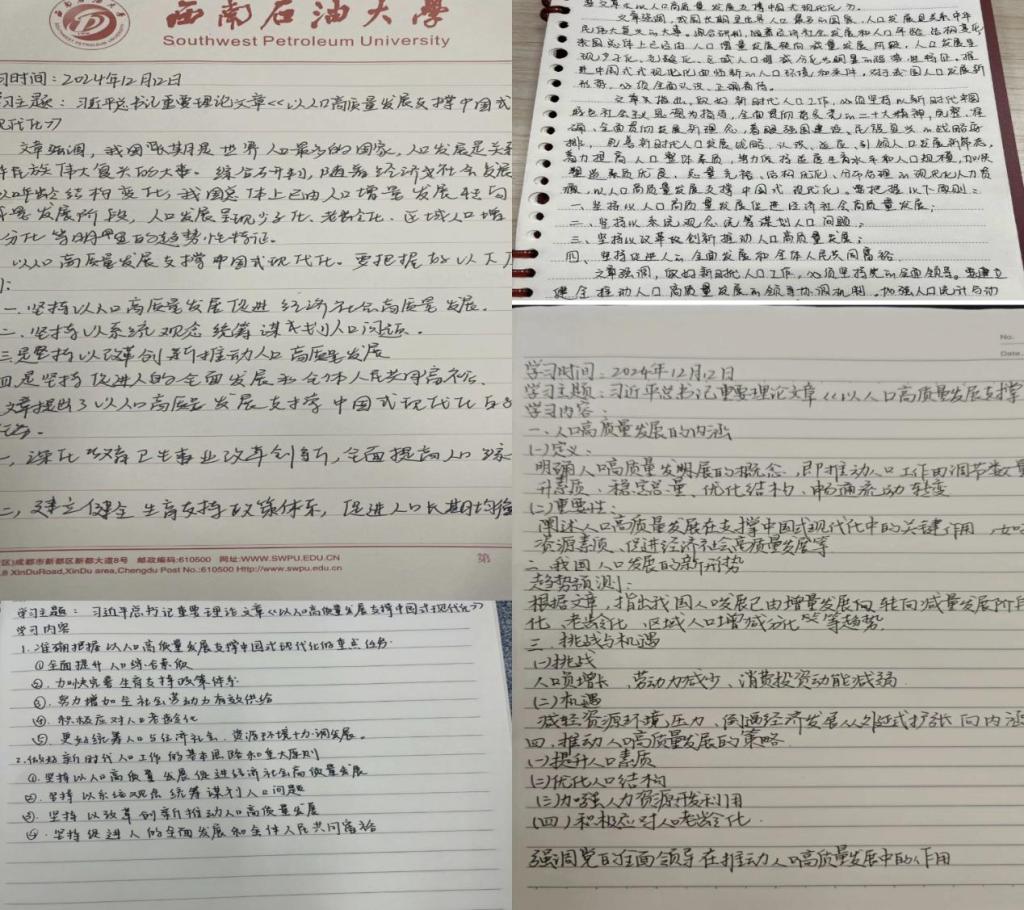 西南石油大学
Southwest Petroleum University
习时间：2024年12月12日
习主题：习近平总书记重要理论文章《以人口高质量发展支撑中国式
现代化》
文章强调，我国长期是世界人口最多的国家，人口发展是关系
民族伟大复兴的大事。综合研判，随着经济社会发展
人口年龄结构变化，我国总体上已由人口增量发展转向
减量发展阶段，人口发展呈现少子化、老龄化、区域人口增
分化等明显的趋势性特征。
以人口高质量发展支撑中国式现代化。要把握好以下
一、坚持以人口高质量发展促进经济社会高质量发展。
二、坚持以系统观念统筹谋划人口问题。
三是坚持以改革创新推动人口高质量发展
四是坚持促进人的全面发展和全体人民共同富裕。
文章提出了以人口高质量发展支撑中国式现代化的
一、深化教育卫生事业改革创新，全面提高人口
二、建立健全生育支持政策体系，促进人口长期均衡
区)成都市新都区新都大道8号 邮政编码:610500 网址:WWW.SWPU.EDU.CN
.8 XinDuRoad,XinDu area,Chengdu Post No.:610500 Http://www.swpu.edu.cn
第
文章以人口高质量发展支撑中国式现代化》。
文章强调，我国长期是世界人口最多的国家，人口发展是关系中华
民族伟大复兴的大事。综合研判，随着经济社会发展和人口年龄结构变化，
我国总体上已由人口增量发展转向减量发展阶段，人口发展呈
现少子化、老龄化、区域人口增减分化等明显的趋势性特征。推
进中国式现代化面临新的人口环境和条件，对于我国人口发展新
形势，必须全面认识、正确看待。
文章指出，做好新时代人口工作，必须坚持以新时代中国
特色社会主义思想为指导，全面贯彻落实党的二十大精神，完整、准
确、全面贯彻发展新理念，着眼强国建设、民族复兴的战略安
排，完善新时代人口发展战略，认识、适应、引领人口发展新常态，
着力提高人口整体素质，努力保持适度生育水平和人口规模，加快
塑造素质优良、总量充裕、结构优化、分布合理的现代化人力资
源，以人口高质量发展支撑中国式现代化。要把握以下原则：
一、坚持以人口高质量发展促进经济社会高质量发展；
二、坚持以系统观念统筹谋划人口问题；
三、坚持以改革创新推动人口高质量发展；
四、坚持促进人的全面发展和全体人民共同富裕
文章强调，做好新时代人口工作，必须坚持党的全面领导。要建立
健全推动人口高质量发展的领导协调机制。加强人口统计与动
No.
Date.
学习时间：2024年12月12日
学习主题：习近平总书记重要理论文章《以人口高质量发展支撑
学习内容：
一、人口高质量发展的内涵
(一)定义：
明确人口高质量发明展的概念，即推动人口工作由调节数量
升素质、稳定总量、优化结构、畅通流动转变
(二)重要性：
阐述人口高质量发展在支撑中国式现代化中的关键作用，如
资源素质、促进经济社会高质量发展等
二、我国人口发展的新形势
趋势预测：
根据文章，指出我国人口发展已由增量发展向转向减量发展阶段
化、老龄化、区域人口增减分化等趋势.
三、挑战与机遇
(一)挑战
人口负增长、劳动力减少、消费投资动能减弱.
(二)机遇
减轻资源环境压力、倒逼经济发展从外延式扩张向内涵
四、推动人口高质量发展的策略
(一)提升人口素质
(二)优化人口结构
(三)加强人力资源开发利用
(四)积极应对人口老龄化.
强调党的全面领导在推动人口高质量发展中的作用
学习主题： 习近平总书记重要理论文章《以人口高质量发展支撑中国式现代化》
学习内容
1.准确把握以人口高质量发展支撑中国式现代化的重点任务
①全面提升人口综合素质
②.加快完善生育支持政策体系
③.努力增加全社会劳动力有效供给
④.积极应对人口老龄化
⑤.更好统筹人口与经济社会、资源环境协调发展。
2.做好新时代人口工作的基本思路和重大原则
①.坚持以人口高质量发展促进经济社会高质量发展
②.坚持以系统观念统筹谋划人口问题
③.坚持以改革创新推动人口高质量发展
④.坚持促进人的全面发展和全体人民共同富裕